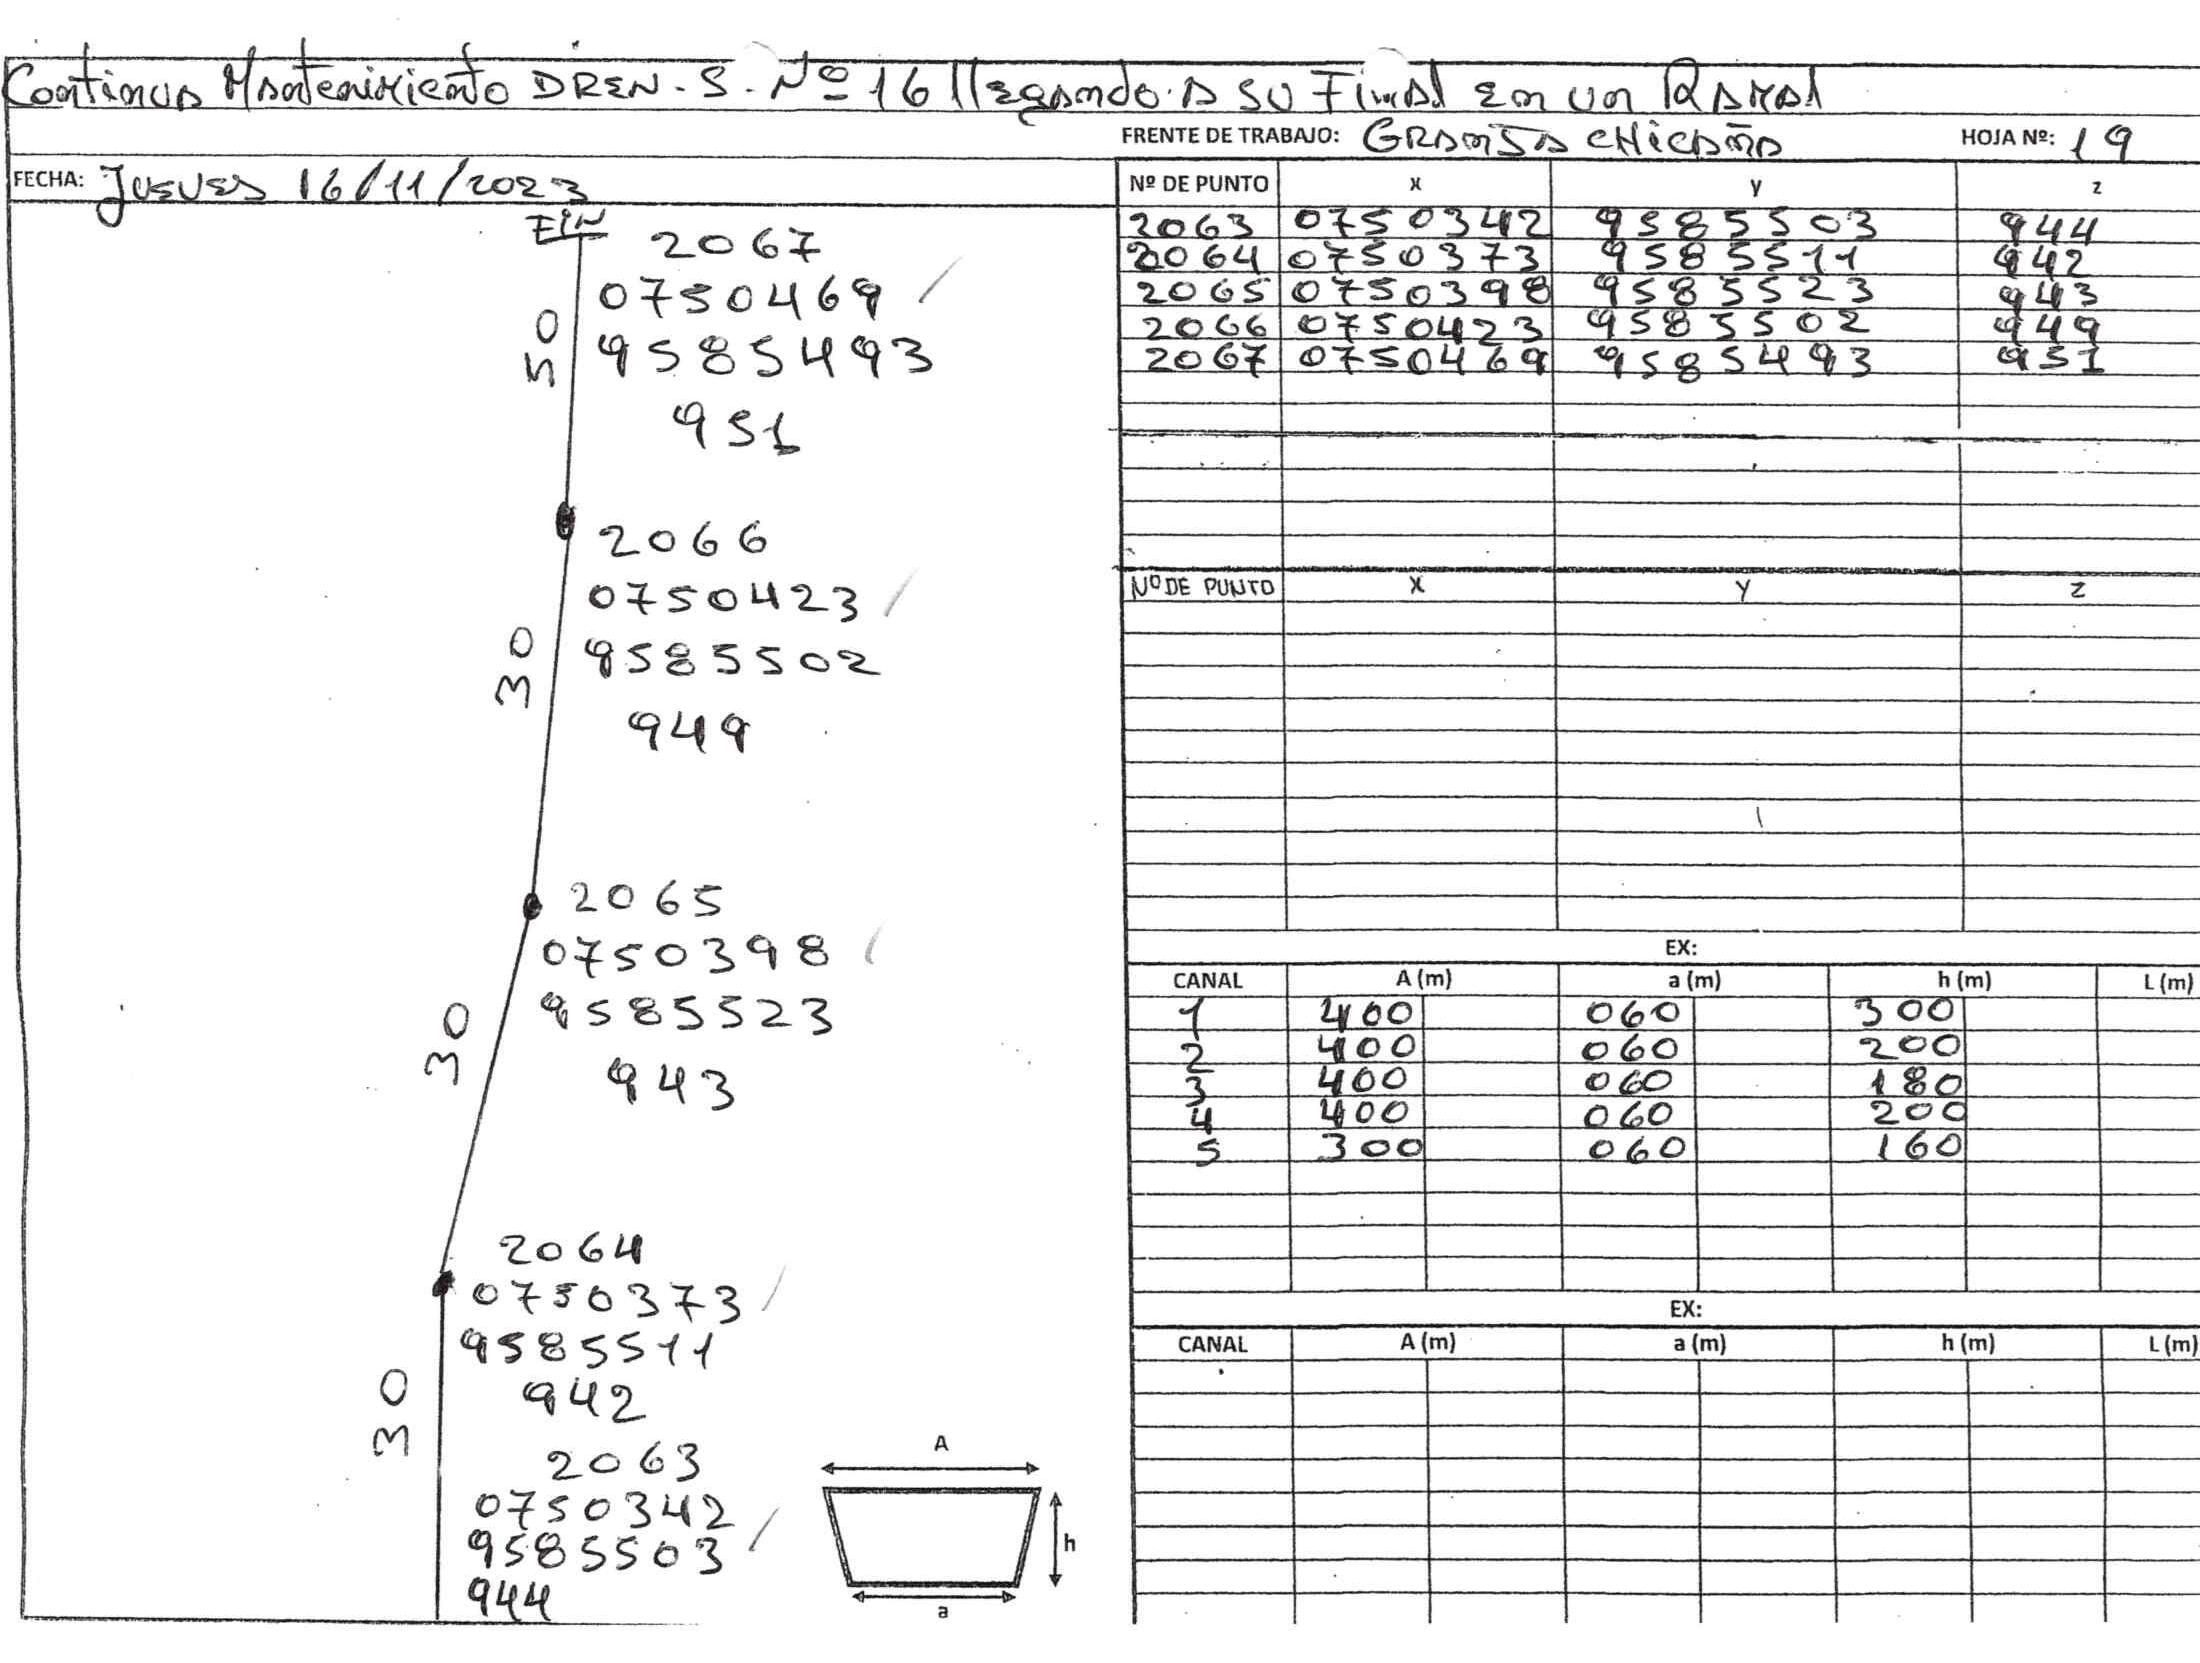 Continua Mantenimiento DREN. S. Nº 16 llegando a su Final en un Ramal
FRENTE DE TRABAJO: GRANJA CHICAÑA HOJA Nº: 19
FECHA: Jueves 16/11/2023
FIN
2067
0750469
9585493
951
50
2066
0750423
9585502
949
30
2065
0750398
9585523
943
30
2064
0750373
9585511
942
30
2063
0750342
9585503
944
A
h
a
Nº DE PUNTO x y z
2063 0750342 9585503 944
2064 0750373 9585511 942
2065 0750398 9585523 943
2066 0750423 9585502 949
2067 0750469 9585493 951
Nº DE PUNTO X Y Z
EX:
CANAL A (m) a (m) h (m) L (m)
1 400 060 300
2 400 060 200
3 400 060 180
4 400 060 200
5 300 060 160
EX:
CANAL A (m) a (m) h (m) L (m)